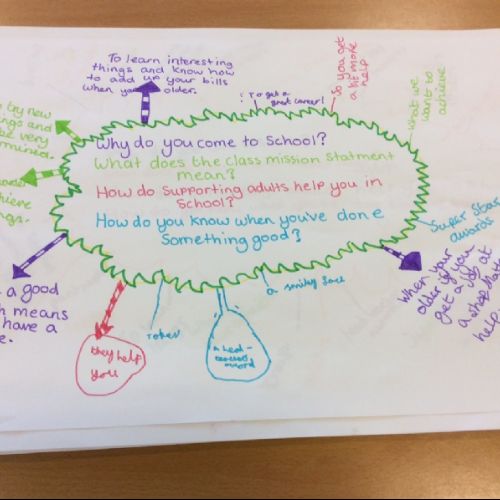 To learn interesting
things and know how
to add up your bills
when you older.
: To get a
great career!
so you get
a bit more
help
what we
want to
achieve
try new
and
be very
Why do you come to School?
What does the class mission statment
mean?
How do supporting adults help you in
School?
How do you know when you've done
Something good?
Super Star
award
When your
older if you
get a job at
a shop
help
a good
means
have a
they help
you
Token
a Head-
teachers
award
a smiley face